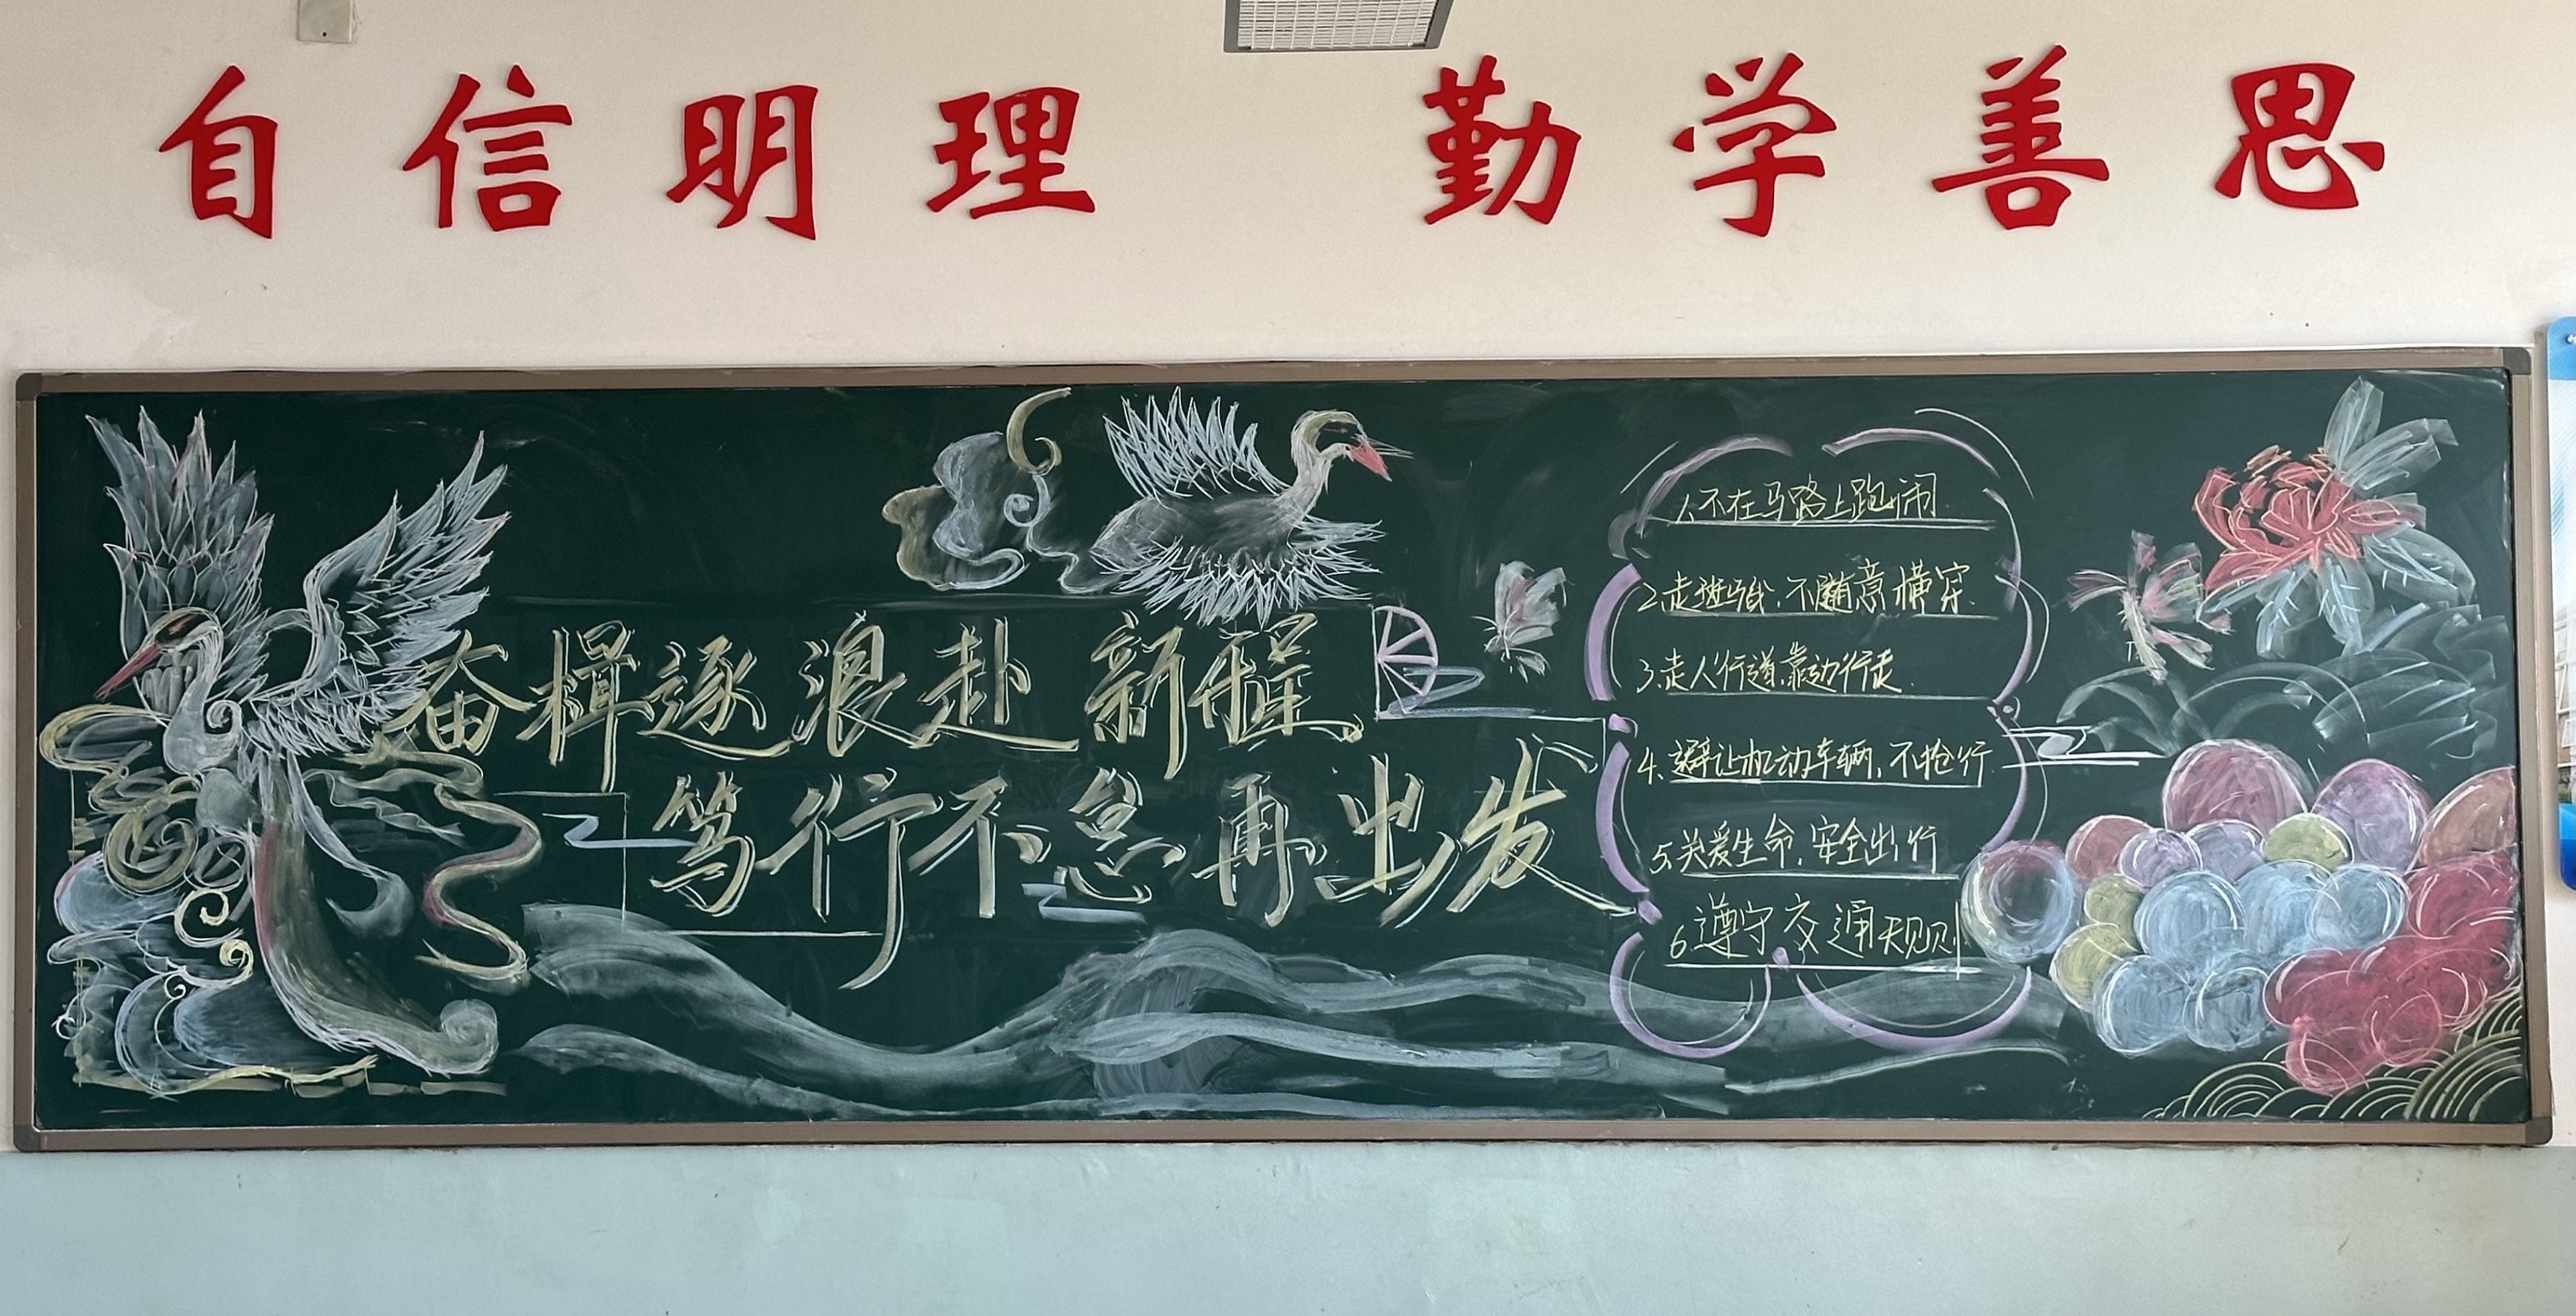 自信明理 勤学善思
奋楫逐浪赴新程
笃行不怠再出发
1.不在马路上跑闹.
2.走斑马线,不随意横穿.
3.走人行道,靠边行走.
4.避让机动车辆,不抢行.
5.关爱生命,安全出行
6.遵守交通规则